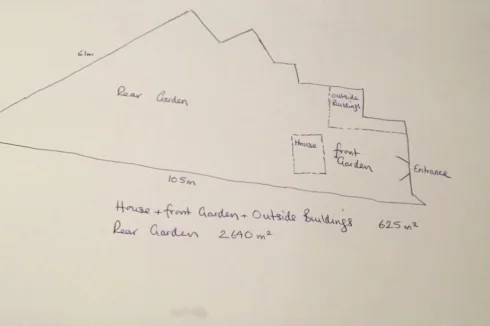 61m
Rear Garden
Outside
Buildings
House
front
Garden
Entrance
105m
House + front Garden + Outside Buildings 625 m²
Rear Garden 2640 m²